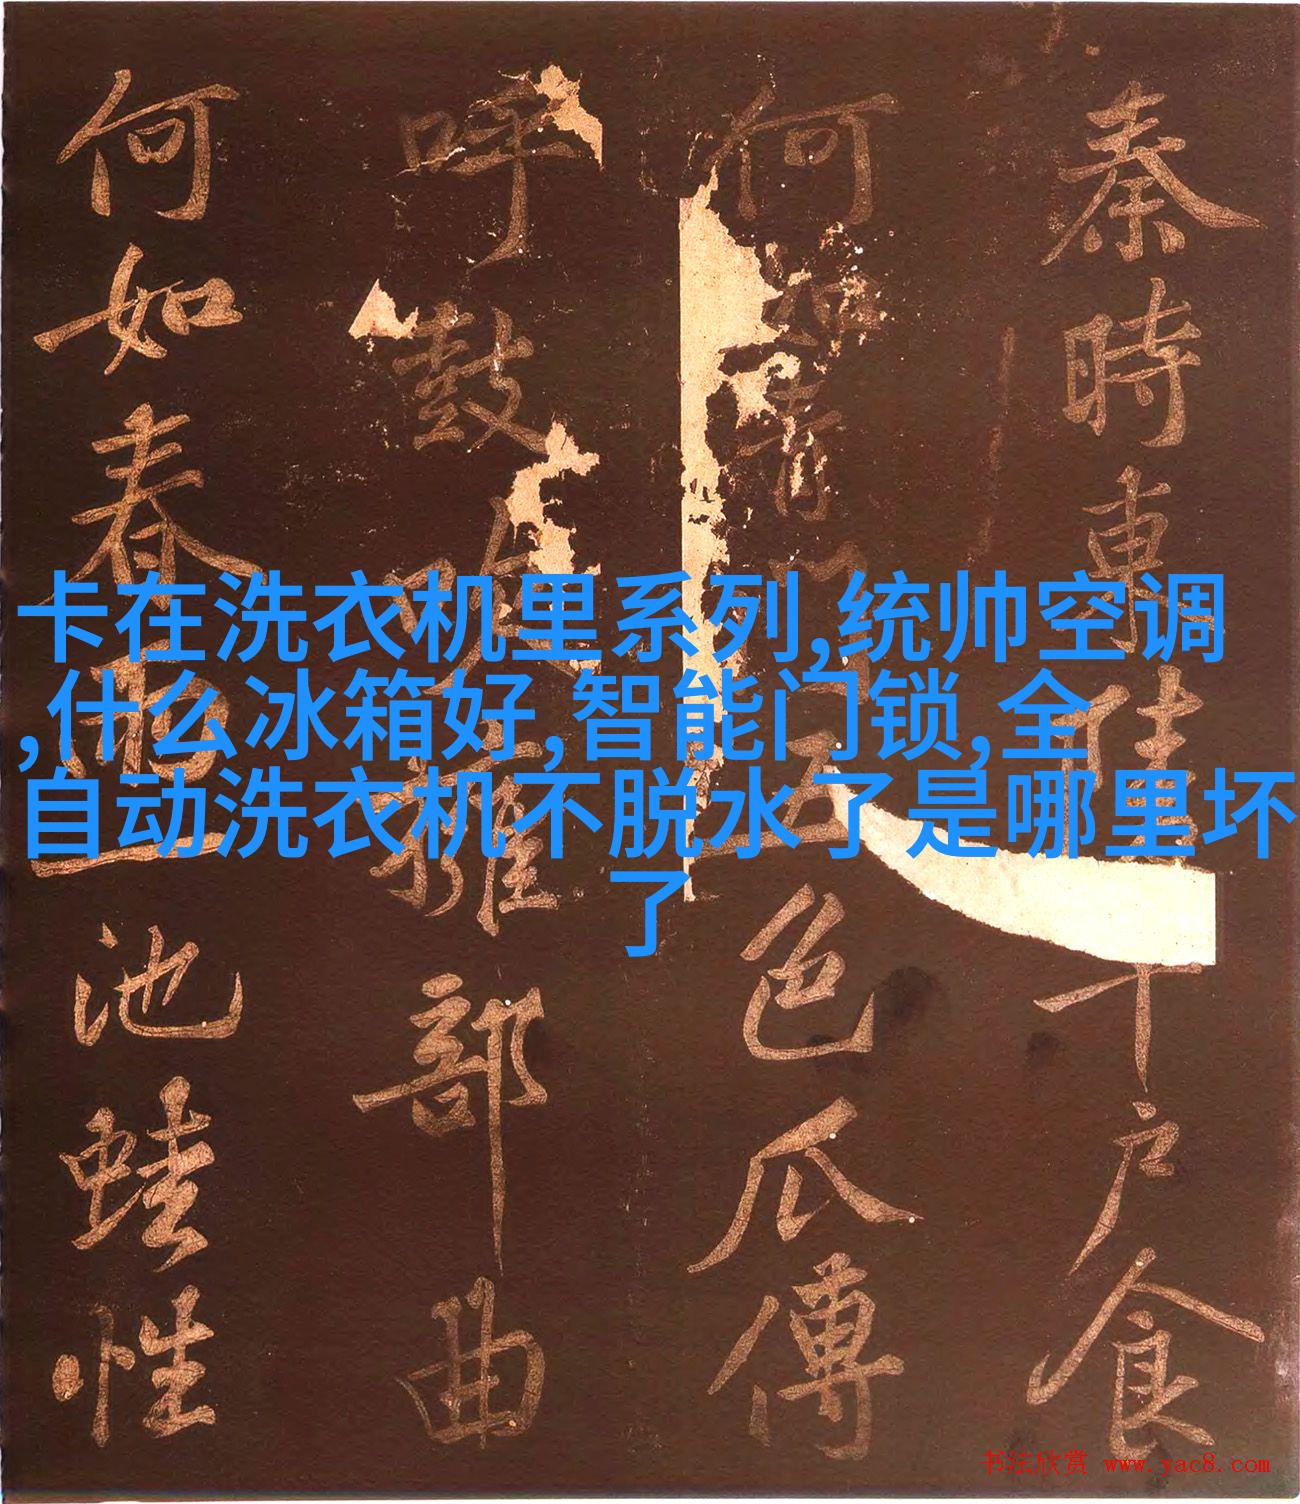 秦時東陵千戶食
何如青門五色瓜傅
呼鼓吹擁部曲
何如春雨一池蛙性
卡在洗衣机里系列,统帅空调
,什么冰箱好,智能门锁,全
自动洗衣机不脱水了是哪里坏
了
书法欣赏 www.yac8.com